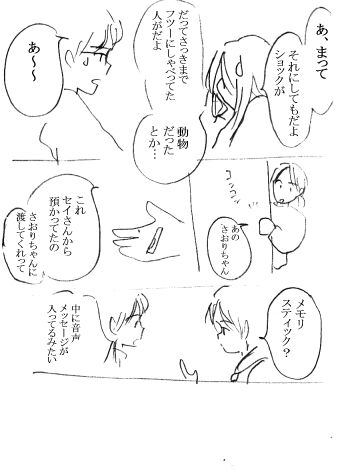 あ、まって
それにしてもだよ
ショックが
だってさっきまで
フツーにしゃべってた
人がだよ
動物
だった
とか…
あ～～
コンコン
あの
さおりちゃん
これ
セイさんから
預かってたの
さおりちゃんに
渡してくれって
メモリ
スティック？
中に音声
メッセージが
入ってるみたい